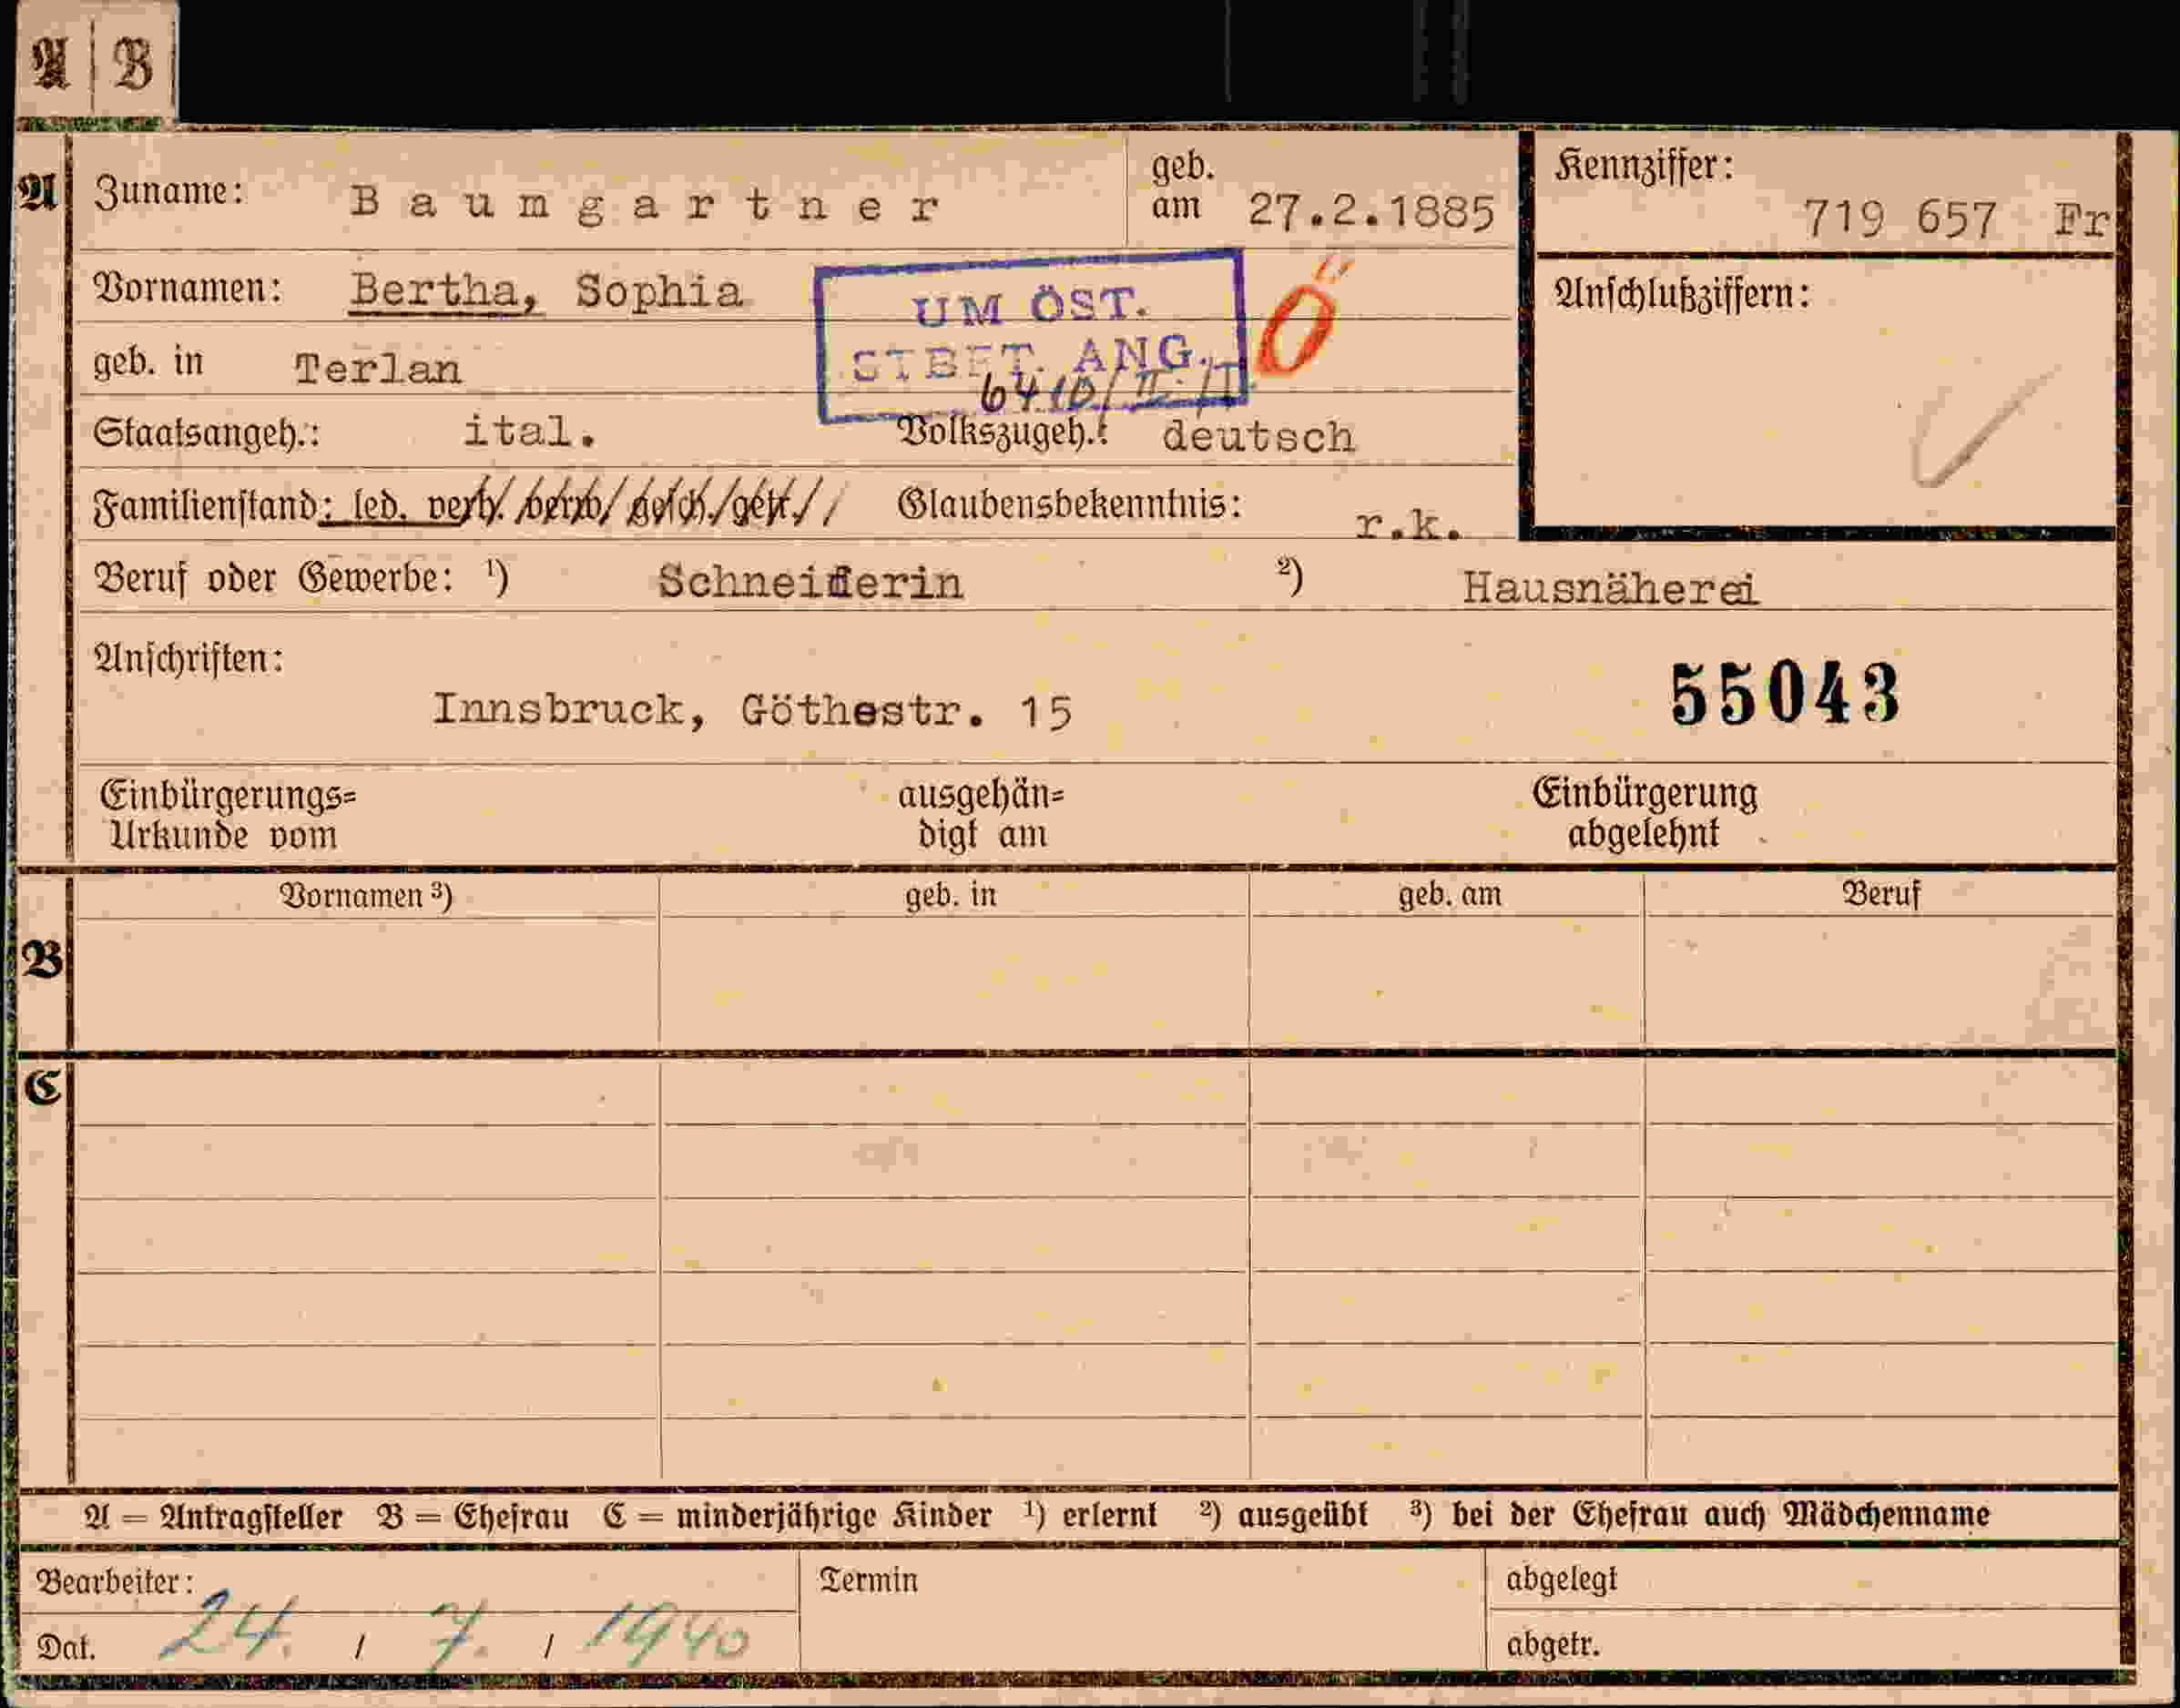 A B
A Zuname: Baumgartner geb. am 27.2.1885 Kennziffer: 719 657 Fr
Vornamen: Bertha, Sophia Anschlußziffern:
UM ÖST.
STBET. ANG. Ö
geb. in Terlan
6410/II
Staatsangeh.: ital. Volkszugeh.: deutsch
Familienstand: led. verh. verw. gesch. getr. Glaubensbekenntnis: r.k.
Beruf oder Gewerbe: ¹) Schneiderin ²) Hausnäherei
Anschriften:
Innsbruck, Göthestr. 15 55043
Einbürgerungs= ausgehän= Einbürgerung
Urkunde vom digt am abgelehnt
Vornamen ³) geb. in geb. am Beruf
B
C
A = Antragsteller B = Ehefrau C = minderjährige Kinder ¹) erlernt ²) ausgeübt ³) bei der Ehefrau auch Mädchenname
Bearbeiter: Termin abgelegt
Dat. 24. / 7. / 1940 abgetr.